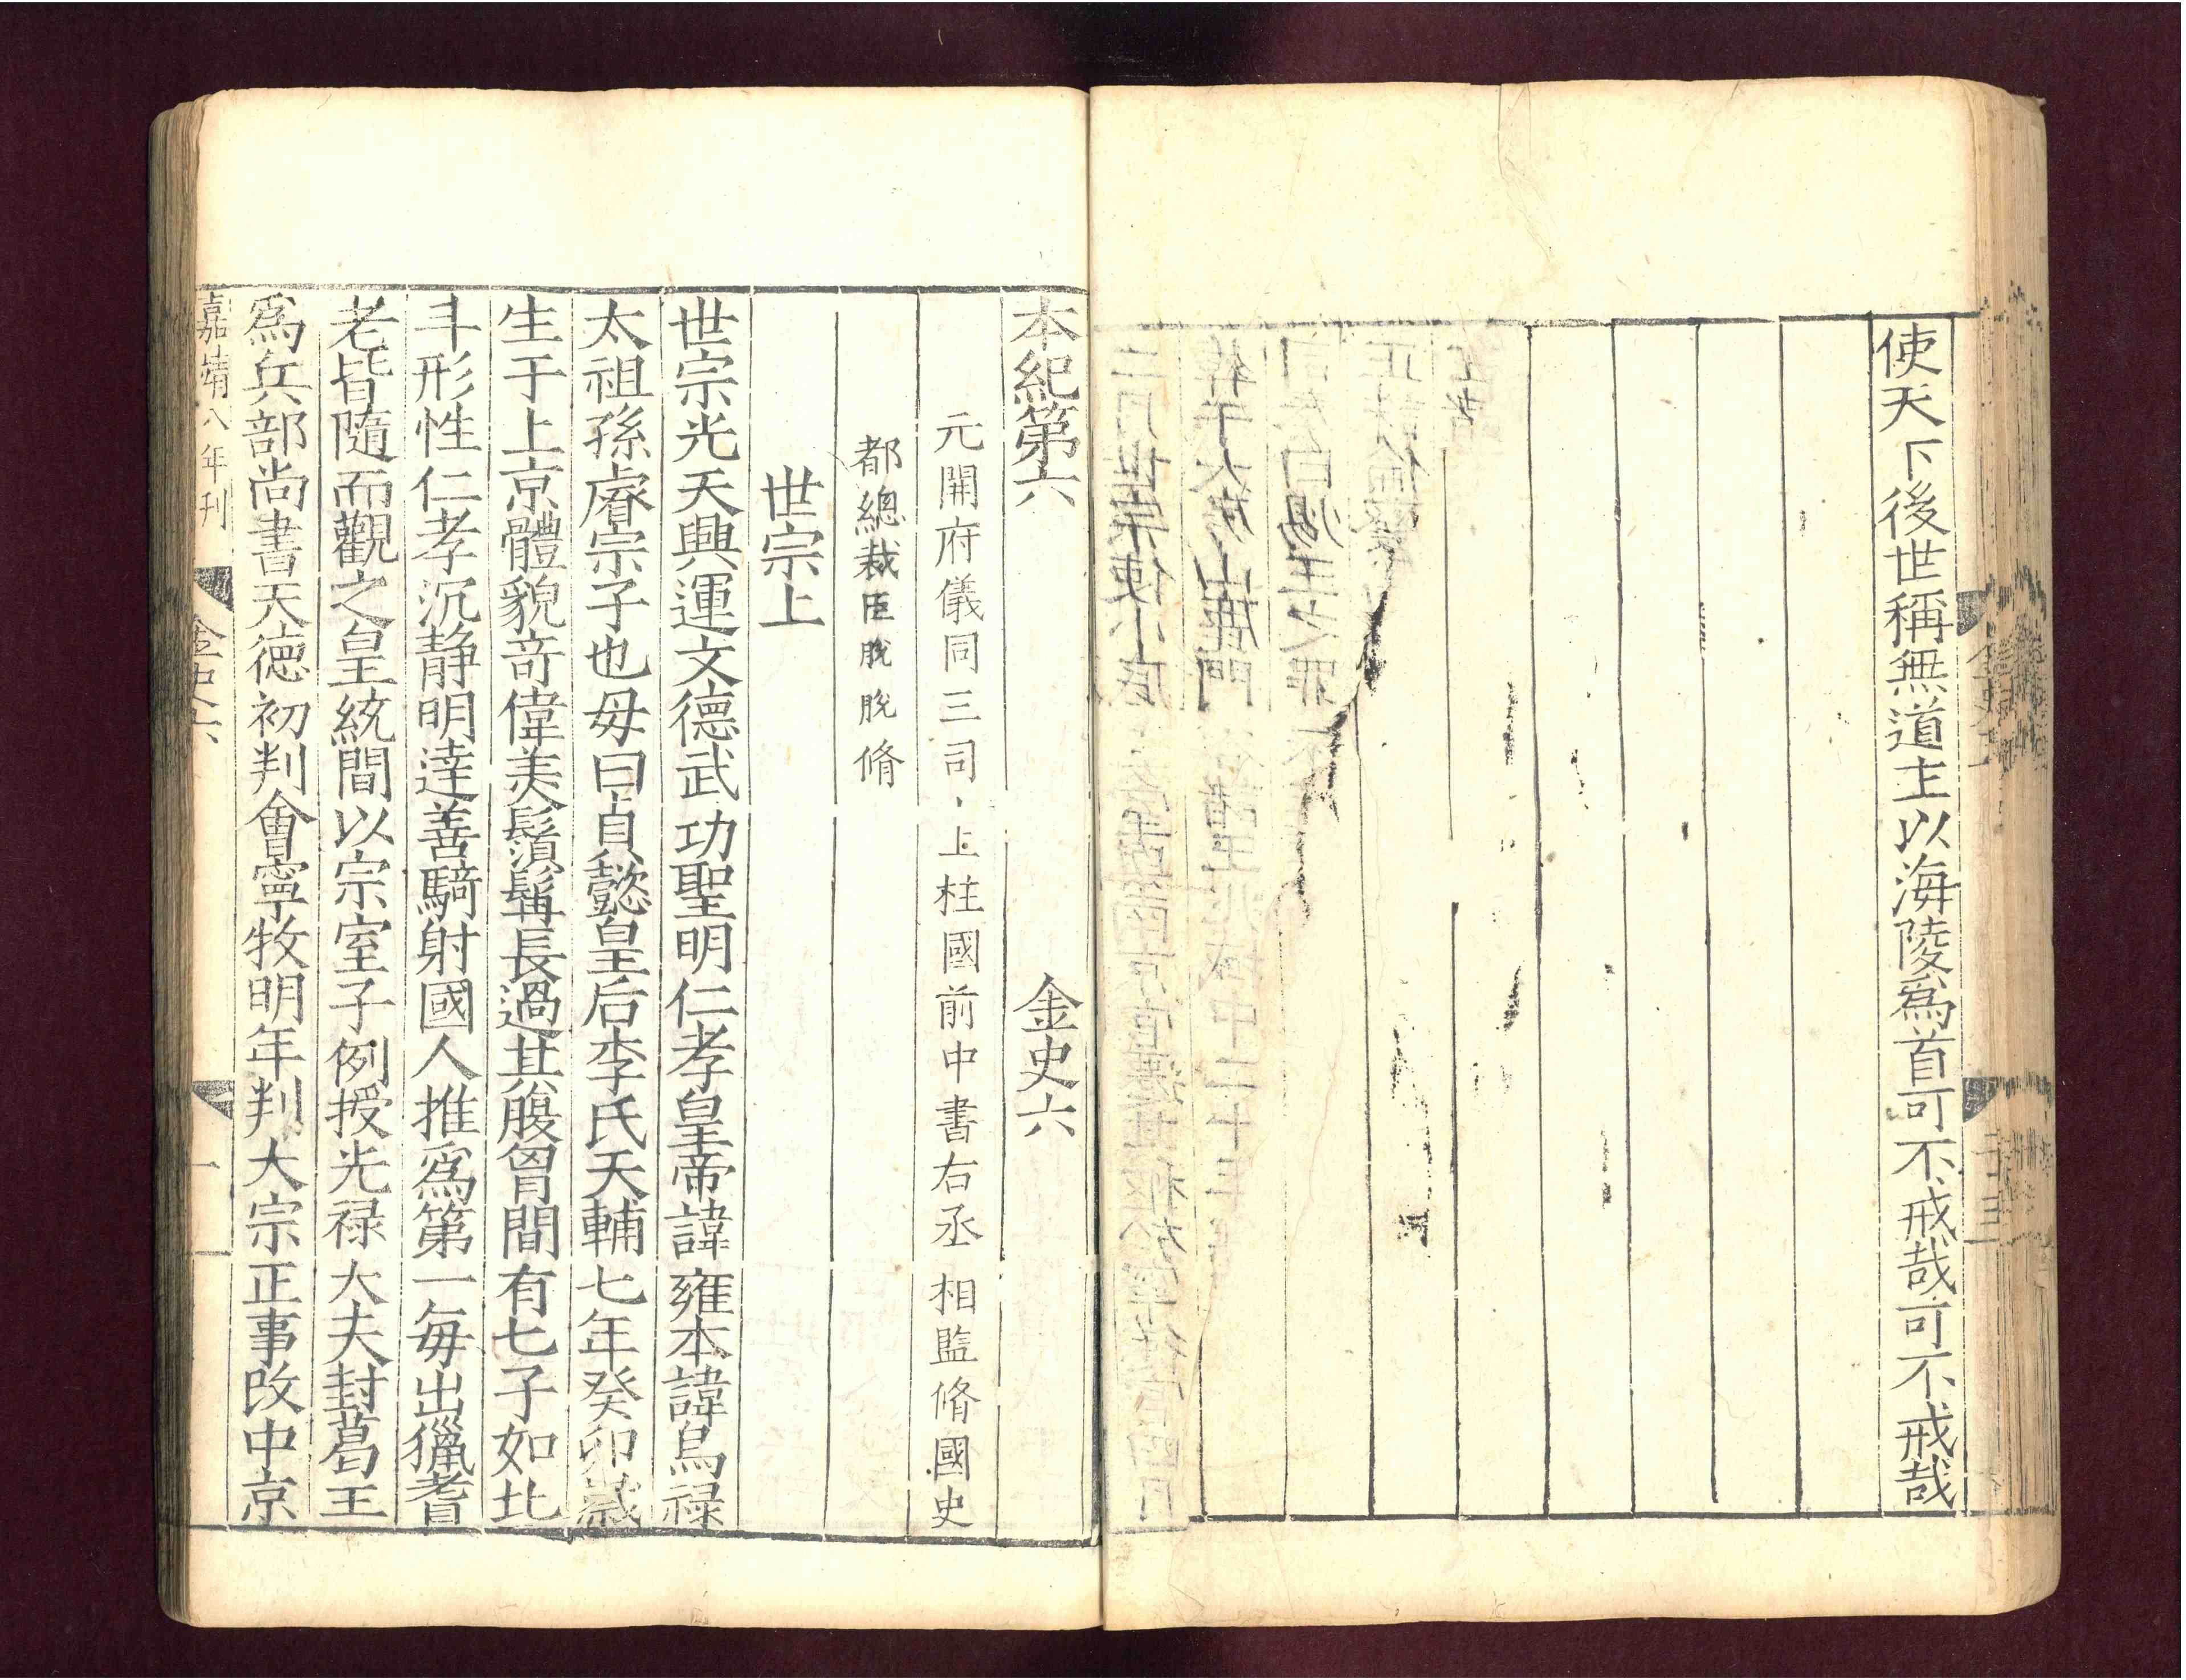 使天下後世稱無道主以海陵爲首可不戒哉可不戒哉
本紀第六 金史六
元開府儀同三司上柱國前中書右丞相監脩國史
都總裁臣脫脫脩
世宗上
世宗光天興運文德武功聖明仁孝皇帝諱雍本諱烏禄
太祖孫睿宗子也母曰貞懿皇后李氏天輔七年癸卯歲
生于上京體貌竒偉美鬚髯長過其腹胷間有七子如北
斗形性仁孝沉静明達善騎射國人推爲第一每出獵耆
老皆隨而觀之皇統間以宗室子例授光禄大夫封葛王
爲兵部尚書天德初判會寧牧明年判大宗正事改中京
嘉靖八年刊 金史六 一